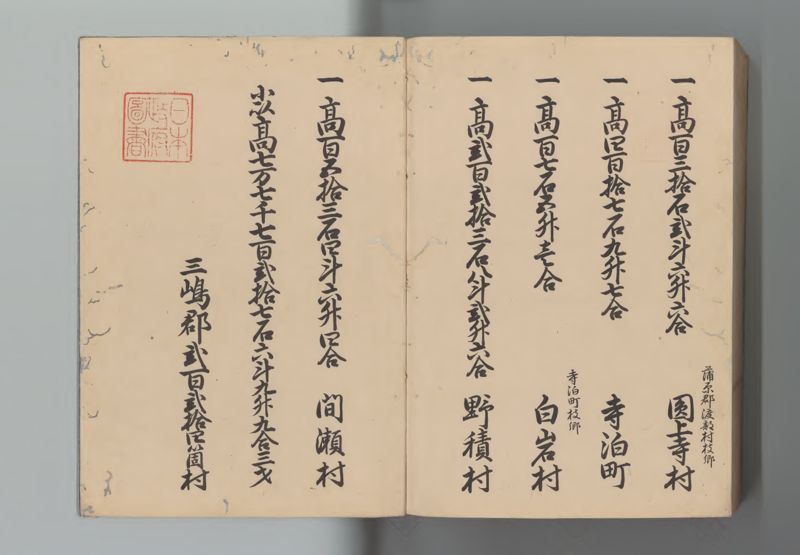 蒲原郡渡部村枝郷
一高百三拾石弐斗六升六合 圓上寺村
一高四百拾七石九升七合 寺泊町
寺泊町枝郷
一高百七石五升壱合 白岩村
一高弐百弐拾三石八斗弐升六合 野積村
一高百五拾三石四斗六升四合 間瀬村
小以高七万七千七百弐拾七石六斗九升九合三才
三嶋郡弐百弐拾四箇村
日本
政府
圖書